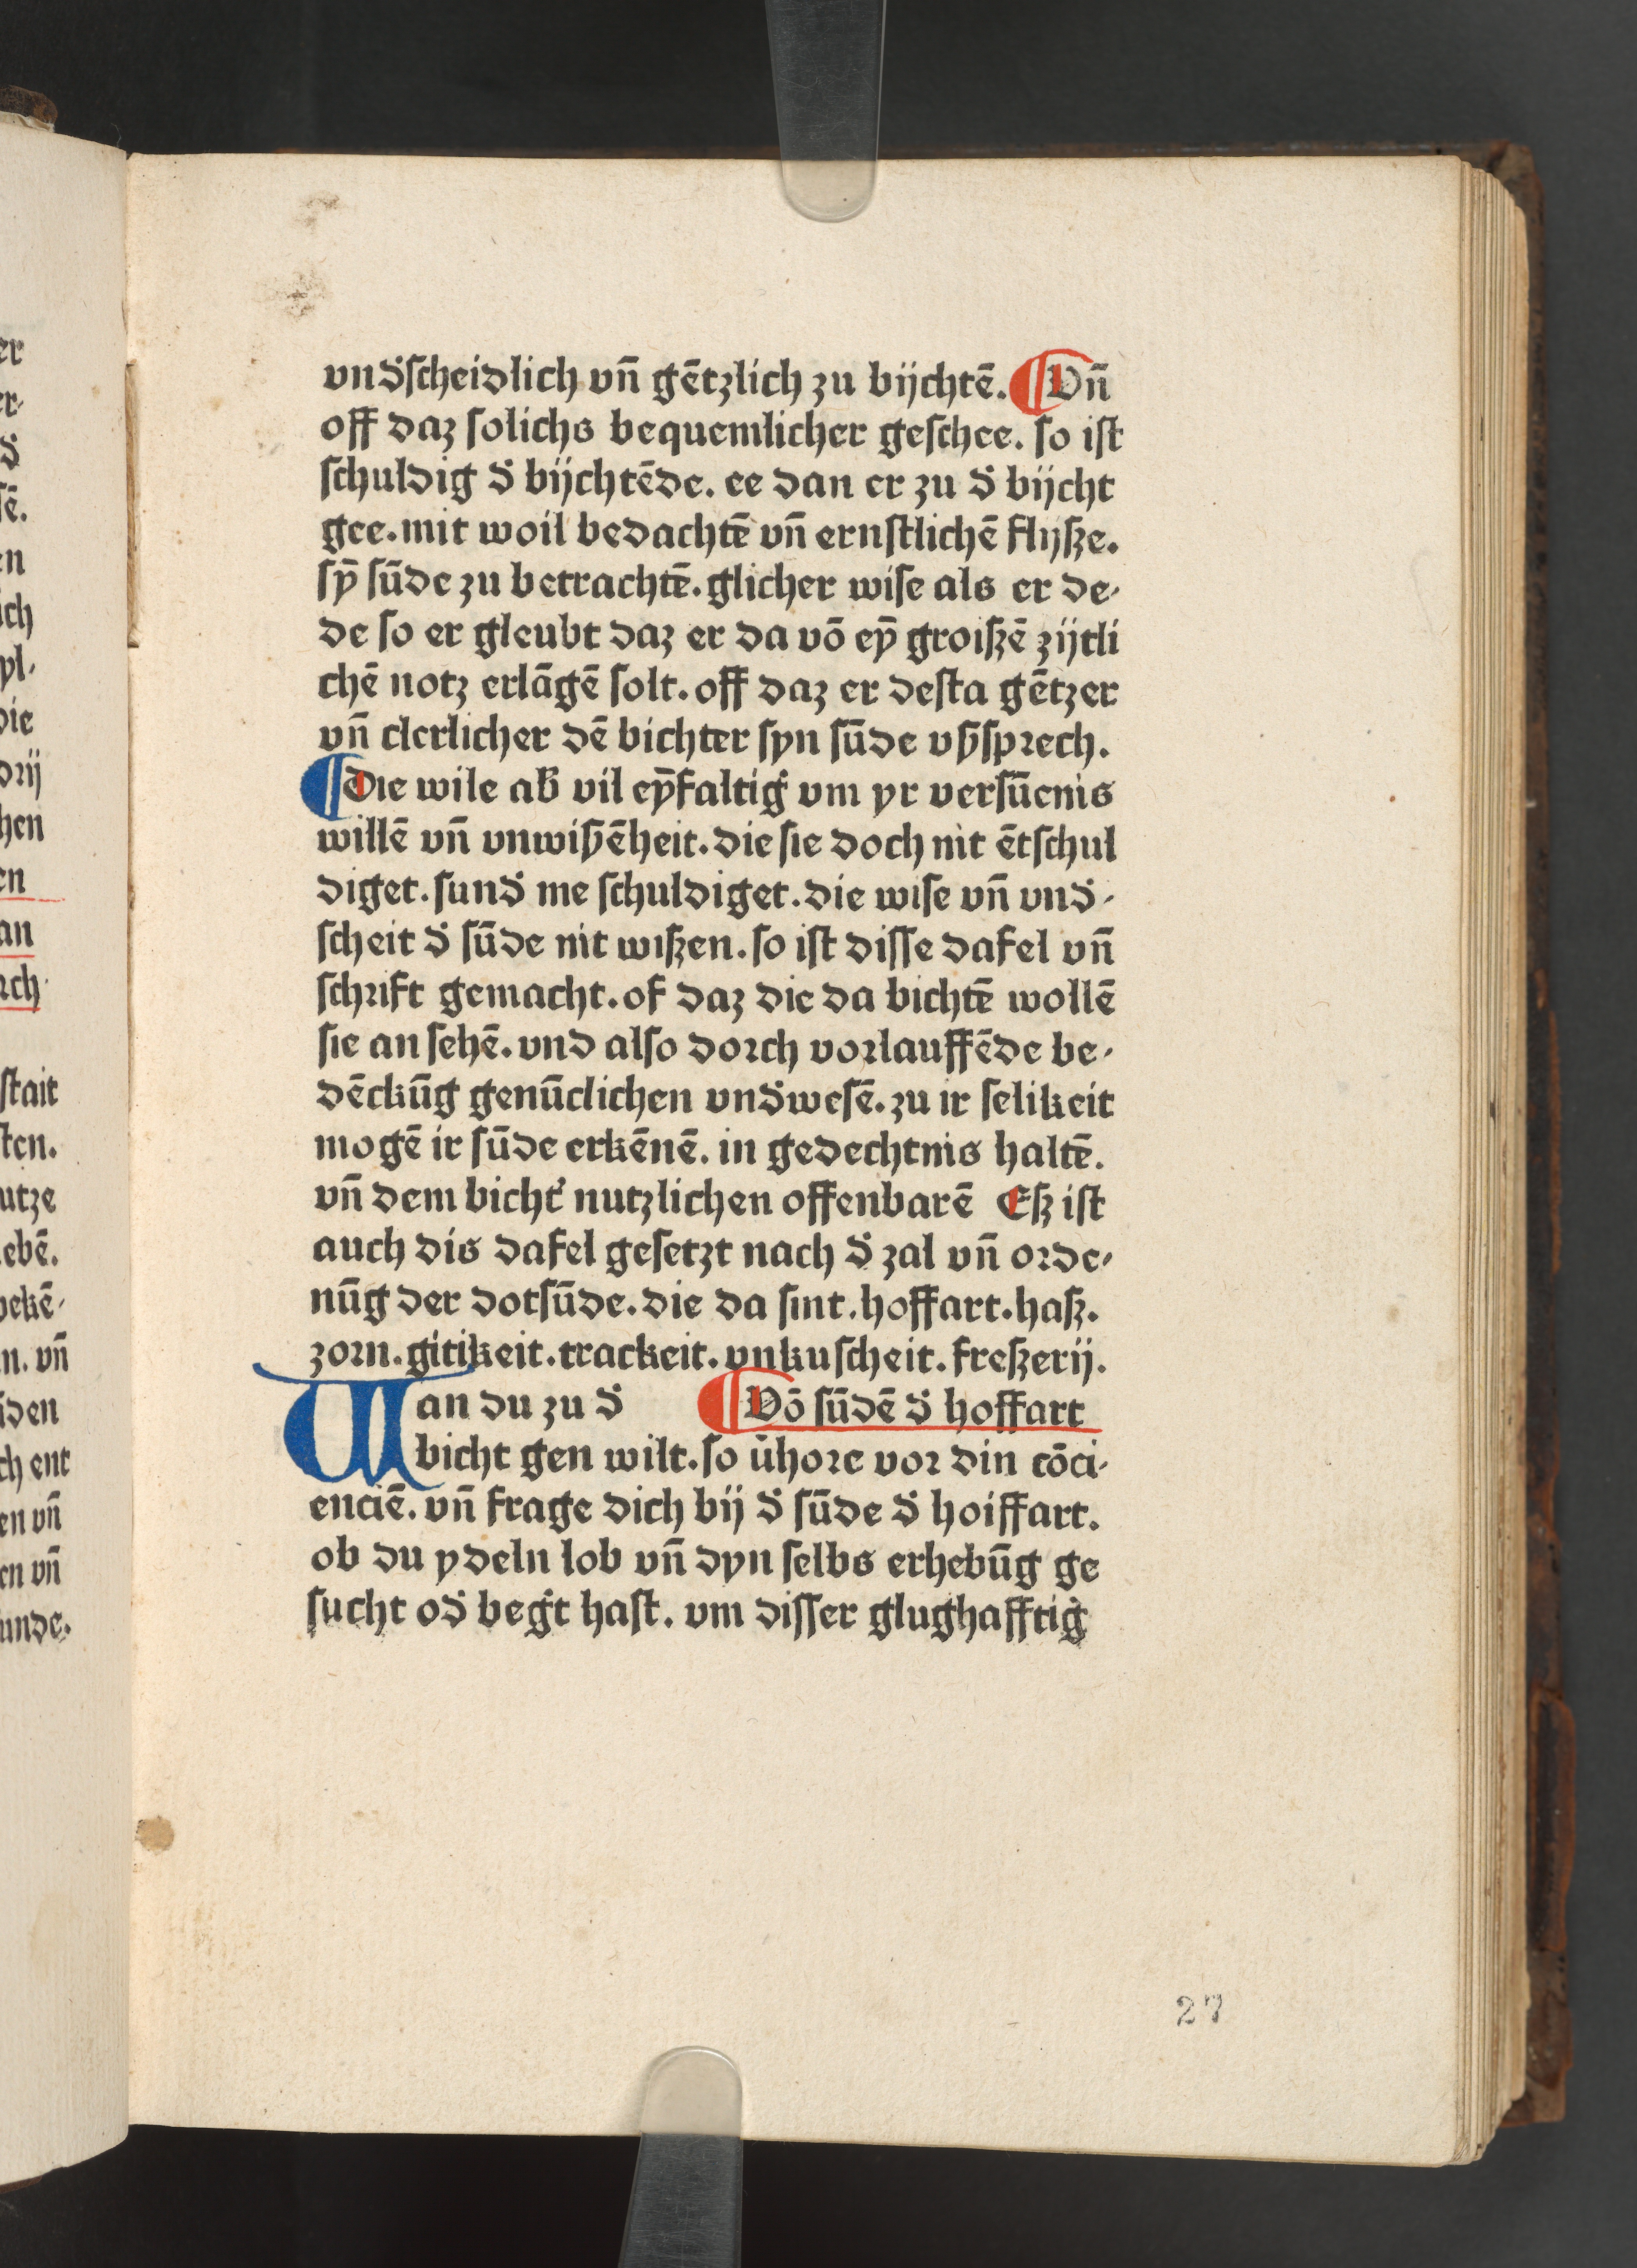 vnd̛ſcheidlich vn̄ gētzlich zu bijchtē. Vn̄
off daz ſolichs bequemlicher geſchee. ſo iſt
ſchuldig d̛ bijchtēde. ee dan er zu d̛ bijcht
gee. mit woil bedachtē vn̄ ernſtlichē flyſze.
ſȳ ſūde zu betrachtē. glicher wiſe als er de⸗
de ſo er gleubt daz er da vō eȳ groiſzē zijtli
chē notz erlāgē ſolt. off daz er deſta gētzer
vn̄ clerlicher dē bichter ſyn ſūde vſſprech.
die wile ab̛ vil eȳfaltig̛ vm yr verſūcnis
willē vn̄ vnwiſſēheit. die ſie doch nit ētſchul
diget. ſund̛ me ſchuldiget. die wiſe vn̄ vnd̛⸗
ſcheit d̛ ſūde nit wiſzen. ſo iſt diſſe dafel vn̄
ſchrift gemacht. of daz die da bichtē wollē
ſie an ſehē. vnd alſo dorch vorlauffēde be⸗
dēckūg genūclichen vnd̛weſē. zu ir ſelikeit
mogē ir ſūde erkēnē. in gedechtnis haltē.
vn̄ dem bicht̛ nutzlichen offenbarē Eſz iſt
auch dis dafel geſetzt nach d̛ zal vn̄ orde⸗
nūg der dotſūde. die da ſint. hoffart. haſz.
zorn. gitikeit. trackeit. vnkuſcheit. freſzerij.
Wan du zu d̛ Vō ſūdē d̛ hoffart
bicht gen wilt. ſo v̛hore vor din cōci⸗
enciē. vn̄ frage dich bij d̛ ſūde d̛ hoiffart.
ob du ydeln lob vn̄ dyn ſelbs erhebūg ge
ſucht od̛ beg̛t haſt. vm diſſer glughafftig̛
27
er
er⸗
d̛
ſē.
en
ich
pl⸗
die
drij
hen
en
an
rch
ſtait
ſten.
utze
ebē.
bekē⸗
n. vn̄
den
ch ent
en vn̄
en vn̄
unde.